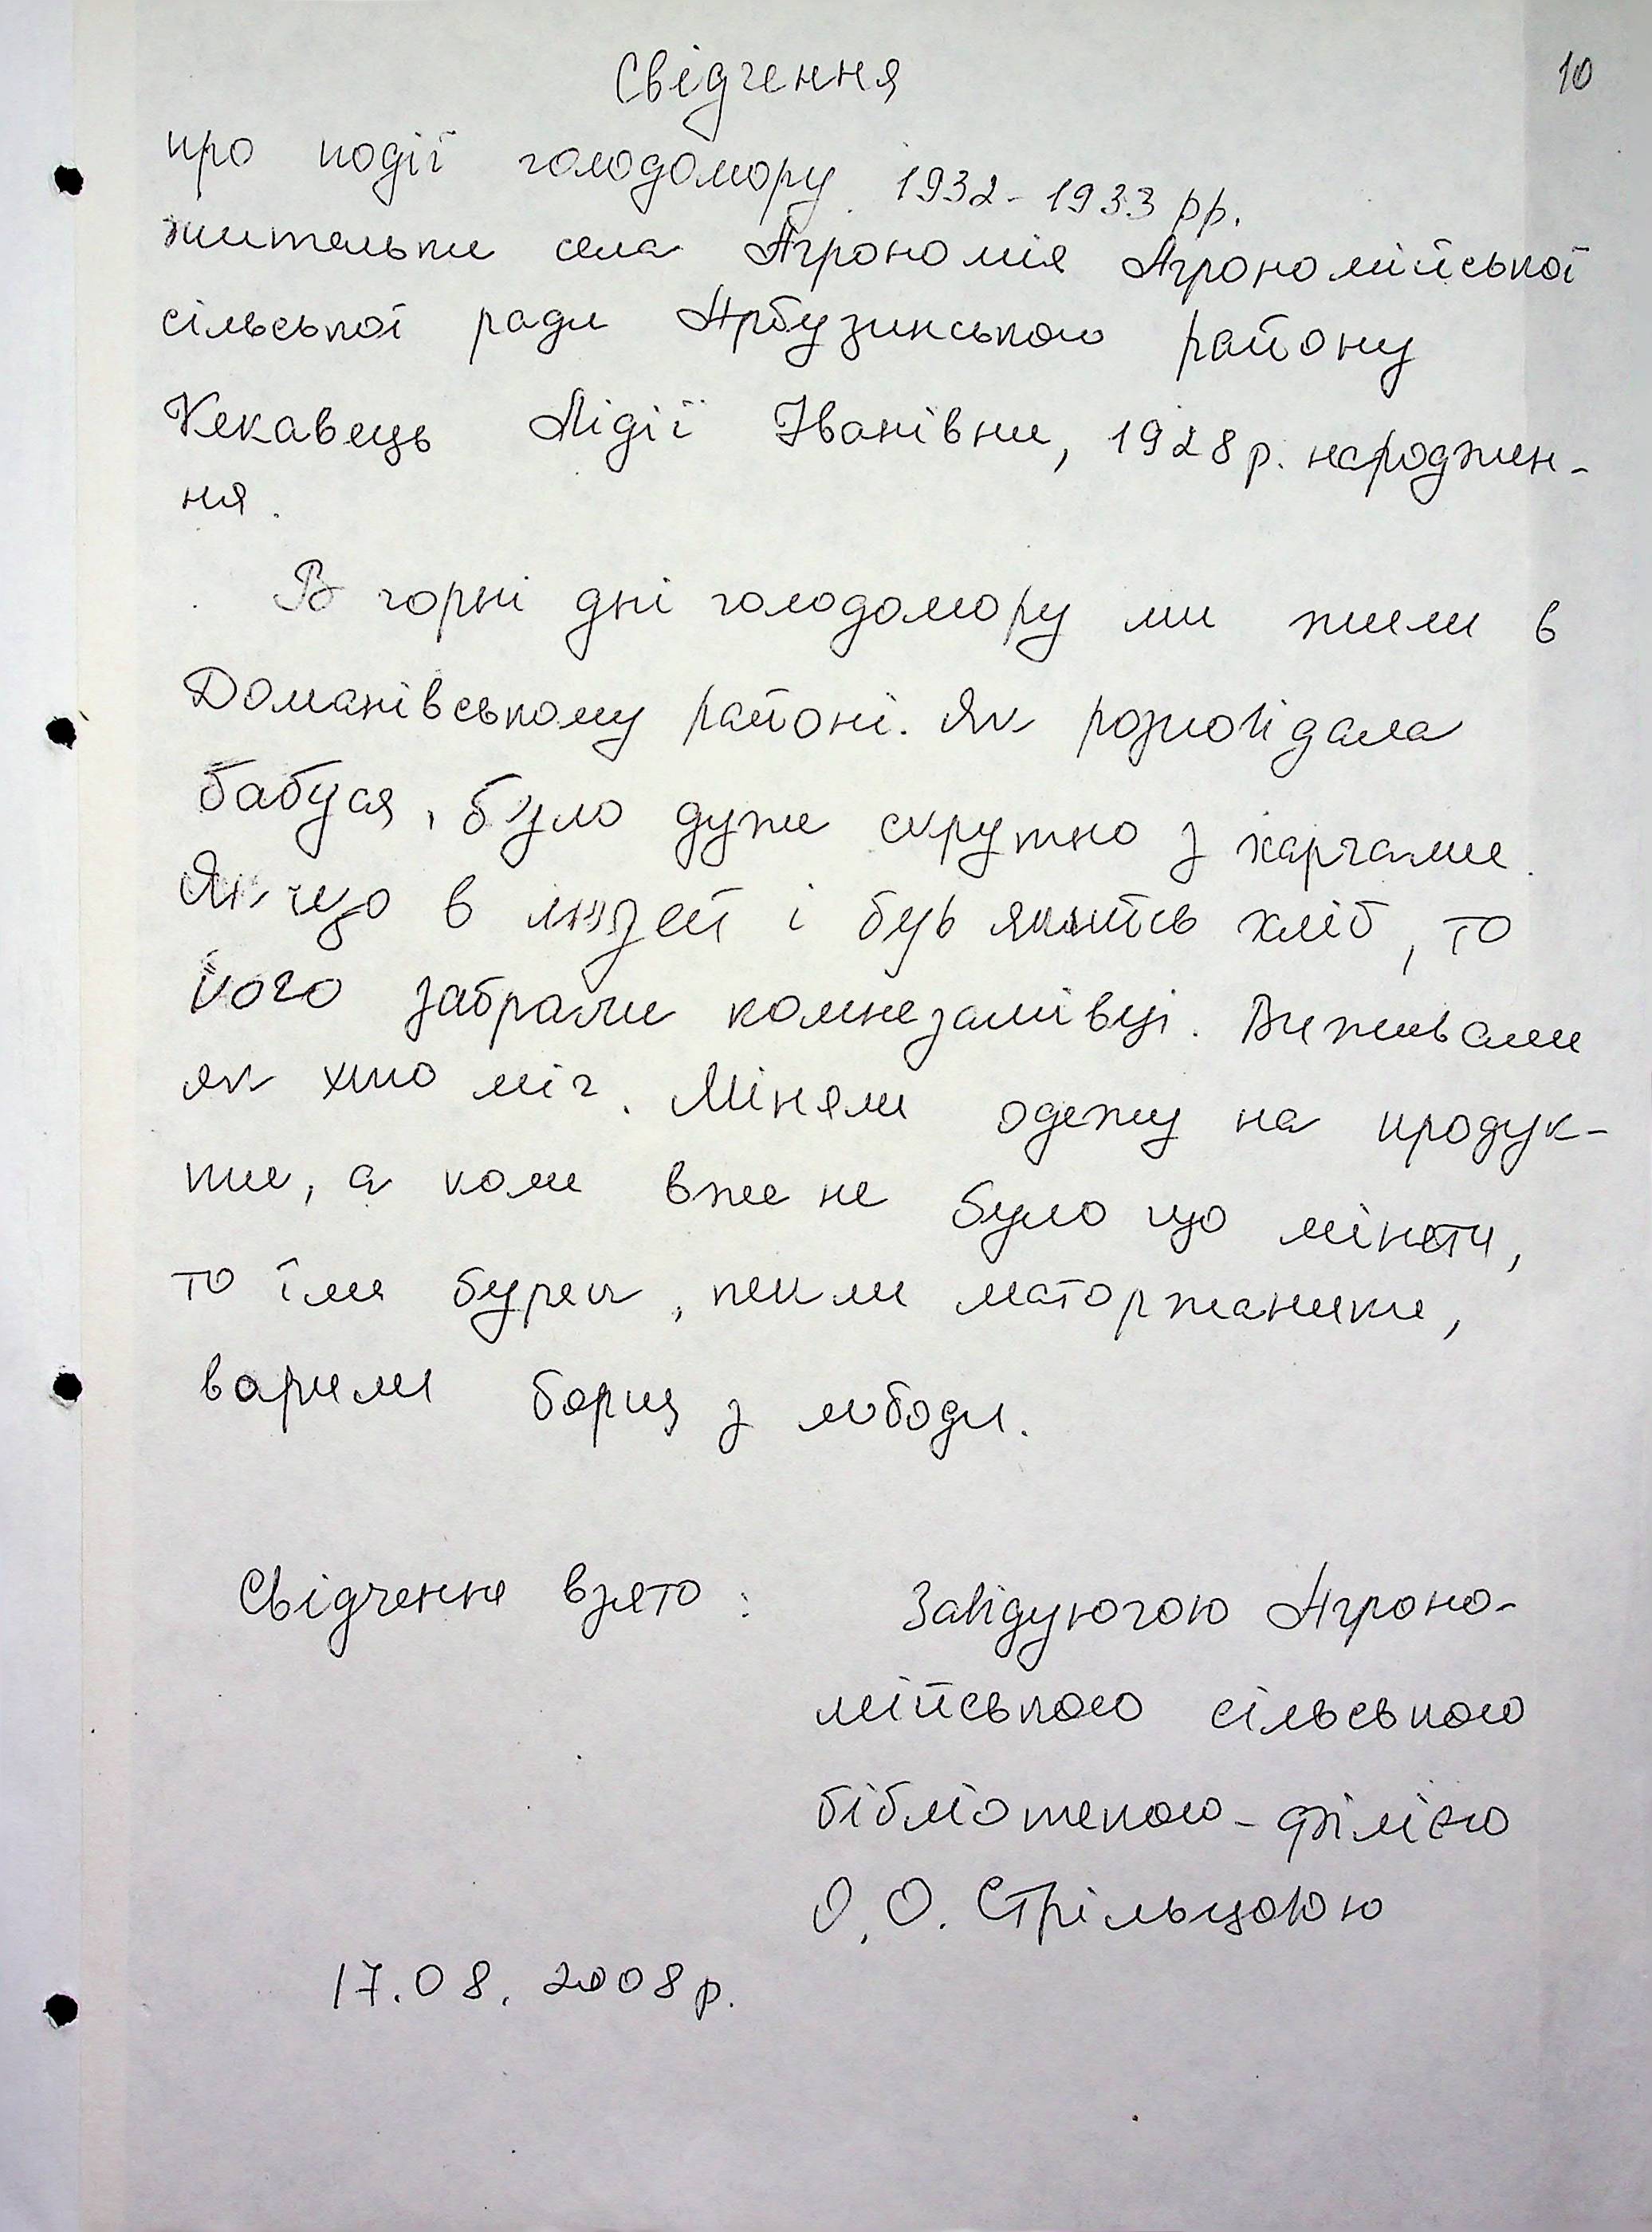 10
Свідчення
про події голодомору 1932-1933 рр.
жительки села Агрономія Агрономійської
сільської ради Арбузинського району
Кекавець Лідії Іванівни, 1928 р. народжен-
ня.
В чорні дні голодомору ми жили в
Доманівському районі. Як розповідала
бабуся, було дуже скрутно з харчами.
Якщо в людей і був якийсь хліб, то
його забрали комнезамівці. Виживали
як хто міг. Міняли одежу на продук-
ти, а коли вже не було що міняти,
то їли буряк, пекли маторжаники,
варили борщ з лободи.
Свідчення взято: Завідуючою Агроно-
мійською сільською
бібліотекою-філією
О.О. Стрільцовою
17.08.2008 р.